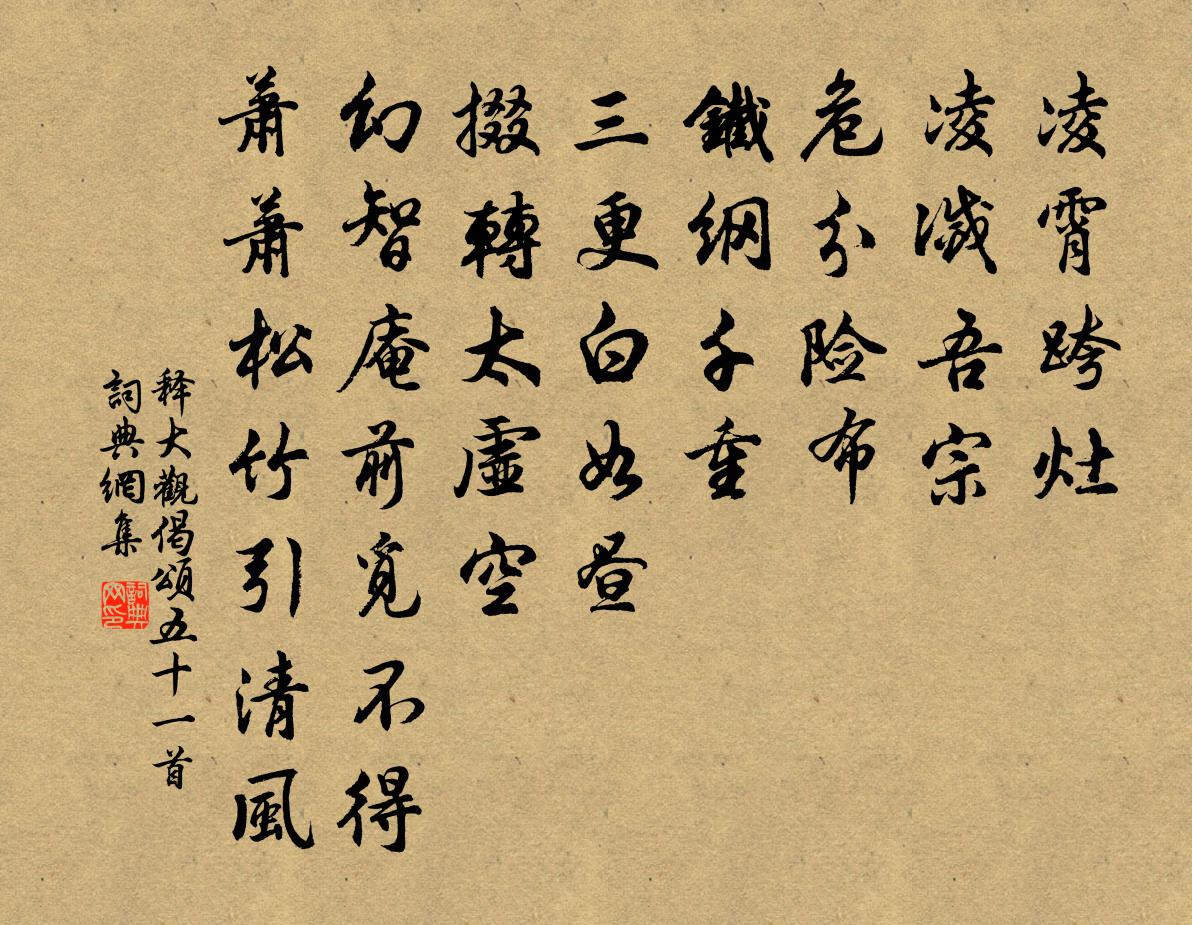 凌霄跨灶
凌滅吾宗
危分险布
鐵網千重
三更白如昼
掇轉太虛空
幻智庵前覓不得
蕭蕭松竹引清風
释大觀偈頌五十一首
詞典網集
詞典
网印